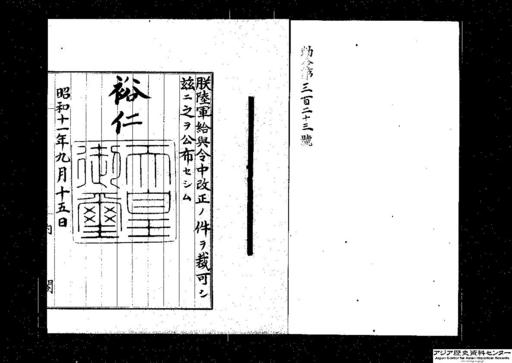 勅令第三百二十三號
朕陸軍給與令中改正ノ件ヲ裁可シ
茲ニ之ヲ公布セシム
裕仁
天皇
御璽
昭和十一年九月十五日
内
閣
アジア歴史資料センター
Japan Center for Asian Historical Records